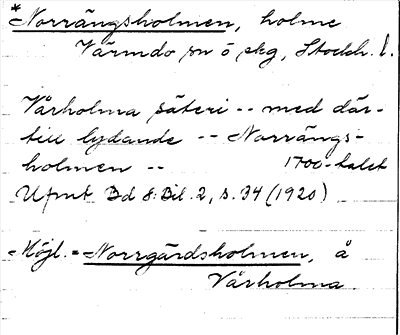 *Norrängsholmen, holme
Värmdö sn o skg, Stockh. l.
Vårholma säteri -- med där-
till lydande -- Norrängs-
holmen -- 1700-talet
Ufmt Bd 8: Bil. 2, s. 34 (1920)
Möjl. = Norrgårdsholmen, å
Vårholma.